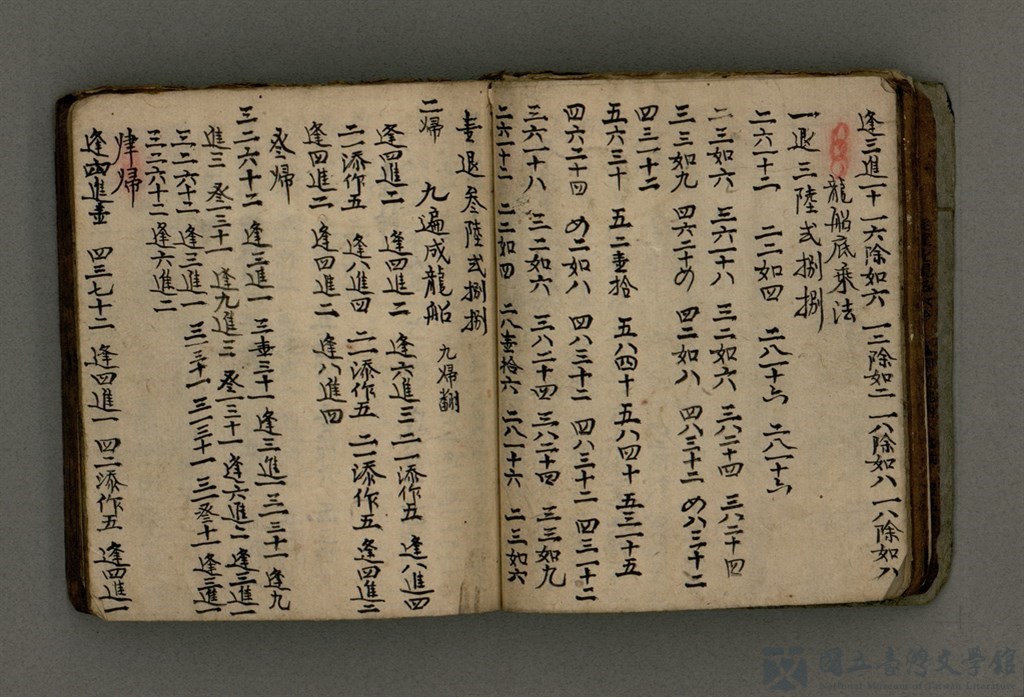 逢三進一十 一六除如六 一二除如二 一八除如八 一八除如八
龍船底乘法
一退三陸弍捌捌
二六十二 二二如四 二八十六 二八十六
二三如六 三六十八 三二如六 三八二十四 三八二十四
三三如九 四六二十四 四二如八 四八三十二 四八三十二
四三十二
五六三十 五二壹拾 五八四十 五八四十 五三十五
四六二十四 四二如八 四八三十二 四八三十二 四三一十二
三六一十八 三二如六 三八二十四 三八二十四 三三如九
二六一十二 二二如四 二八壹拾六 二八一十六 二三如六
壹退叁陸弍捌捌
九遍成龍船 九帰翻
二帰
逢四進二 逢四進二 逢六進三 二一添作五 逢八進四
二一添作五 逢八進四 二一添作五 二一添作五 逢四進二
逢四進二 逢四進二 逢八進四
叁帰
三二六十二 逢三進一 三壹三十一 逢三進一 三一三十一 逢九
進三 叁一三十一 逢九進三 叁一三十一 逢六進二 逢三進一
三二六十二 逢三進一 三一三十一 三一三十一 三一叁十一 逢三進一
三二六十二 逢六進二
肆帰
逢四進壹 四三七十二 逢四進一 四二添作五 逢四進一
國立臺灣文學館
National Museum of Taiwan Literature